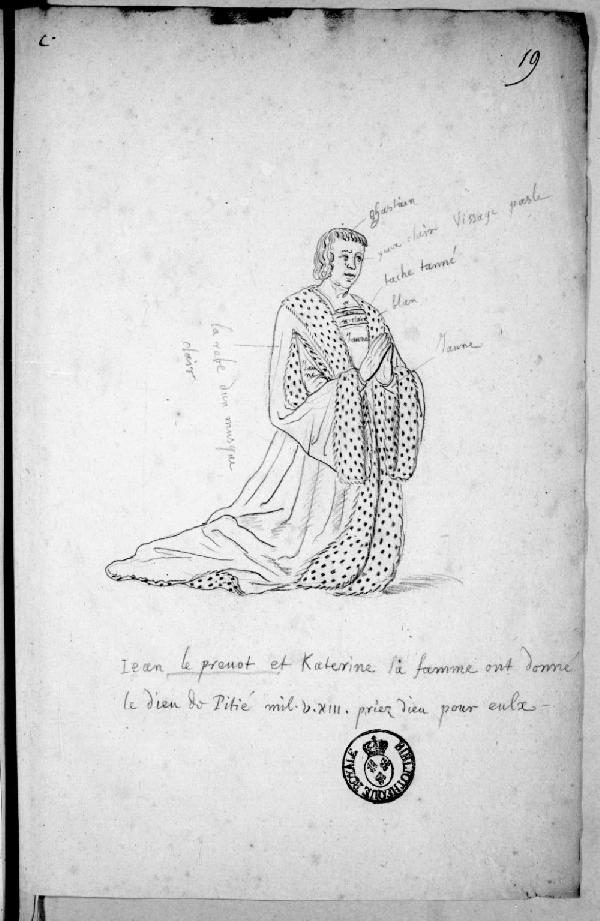 c
19
chastain
yeux clair Vissage pasle
tache tanné
blan
Jaune
Jaune
la robe d'un musque
clair
Iean le preuot et Katerine sa famme ont donné
le dieu de Pitié mil. v. XIII. priez dieu pour eulx
BIBLIOTHEQUE ROYALE